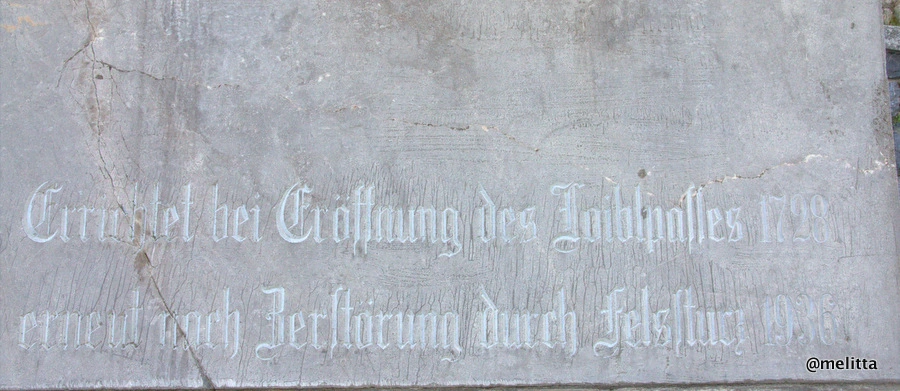 Errichtet bei Eröffnung des Loiblpasses 1728
erneut nach Zerstörung durch Felssturz 1936
@melitta